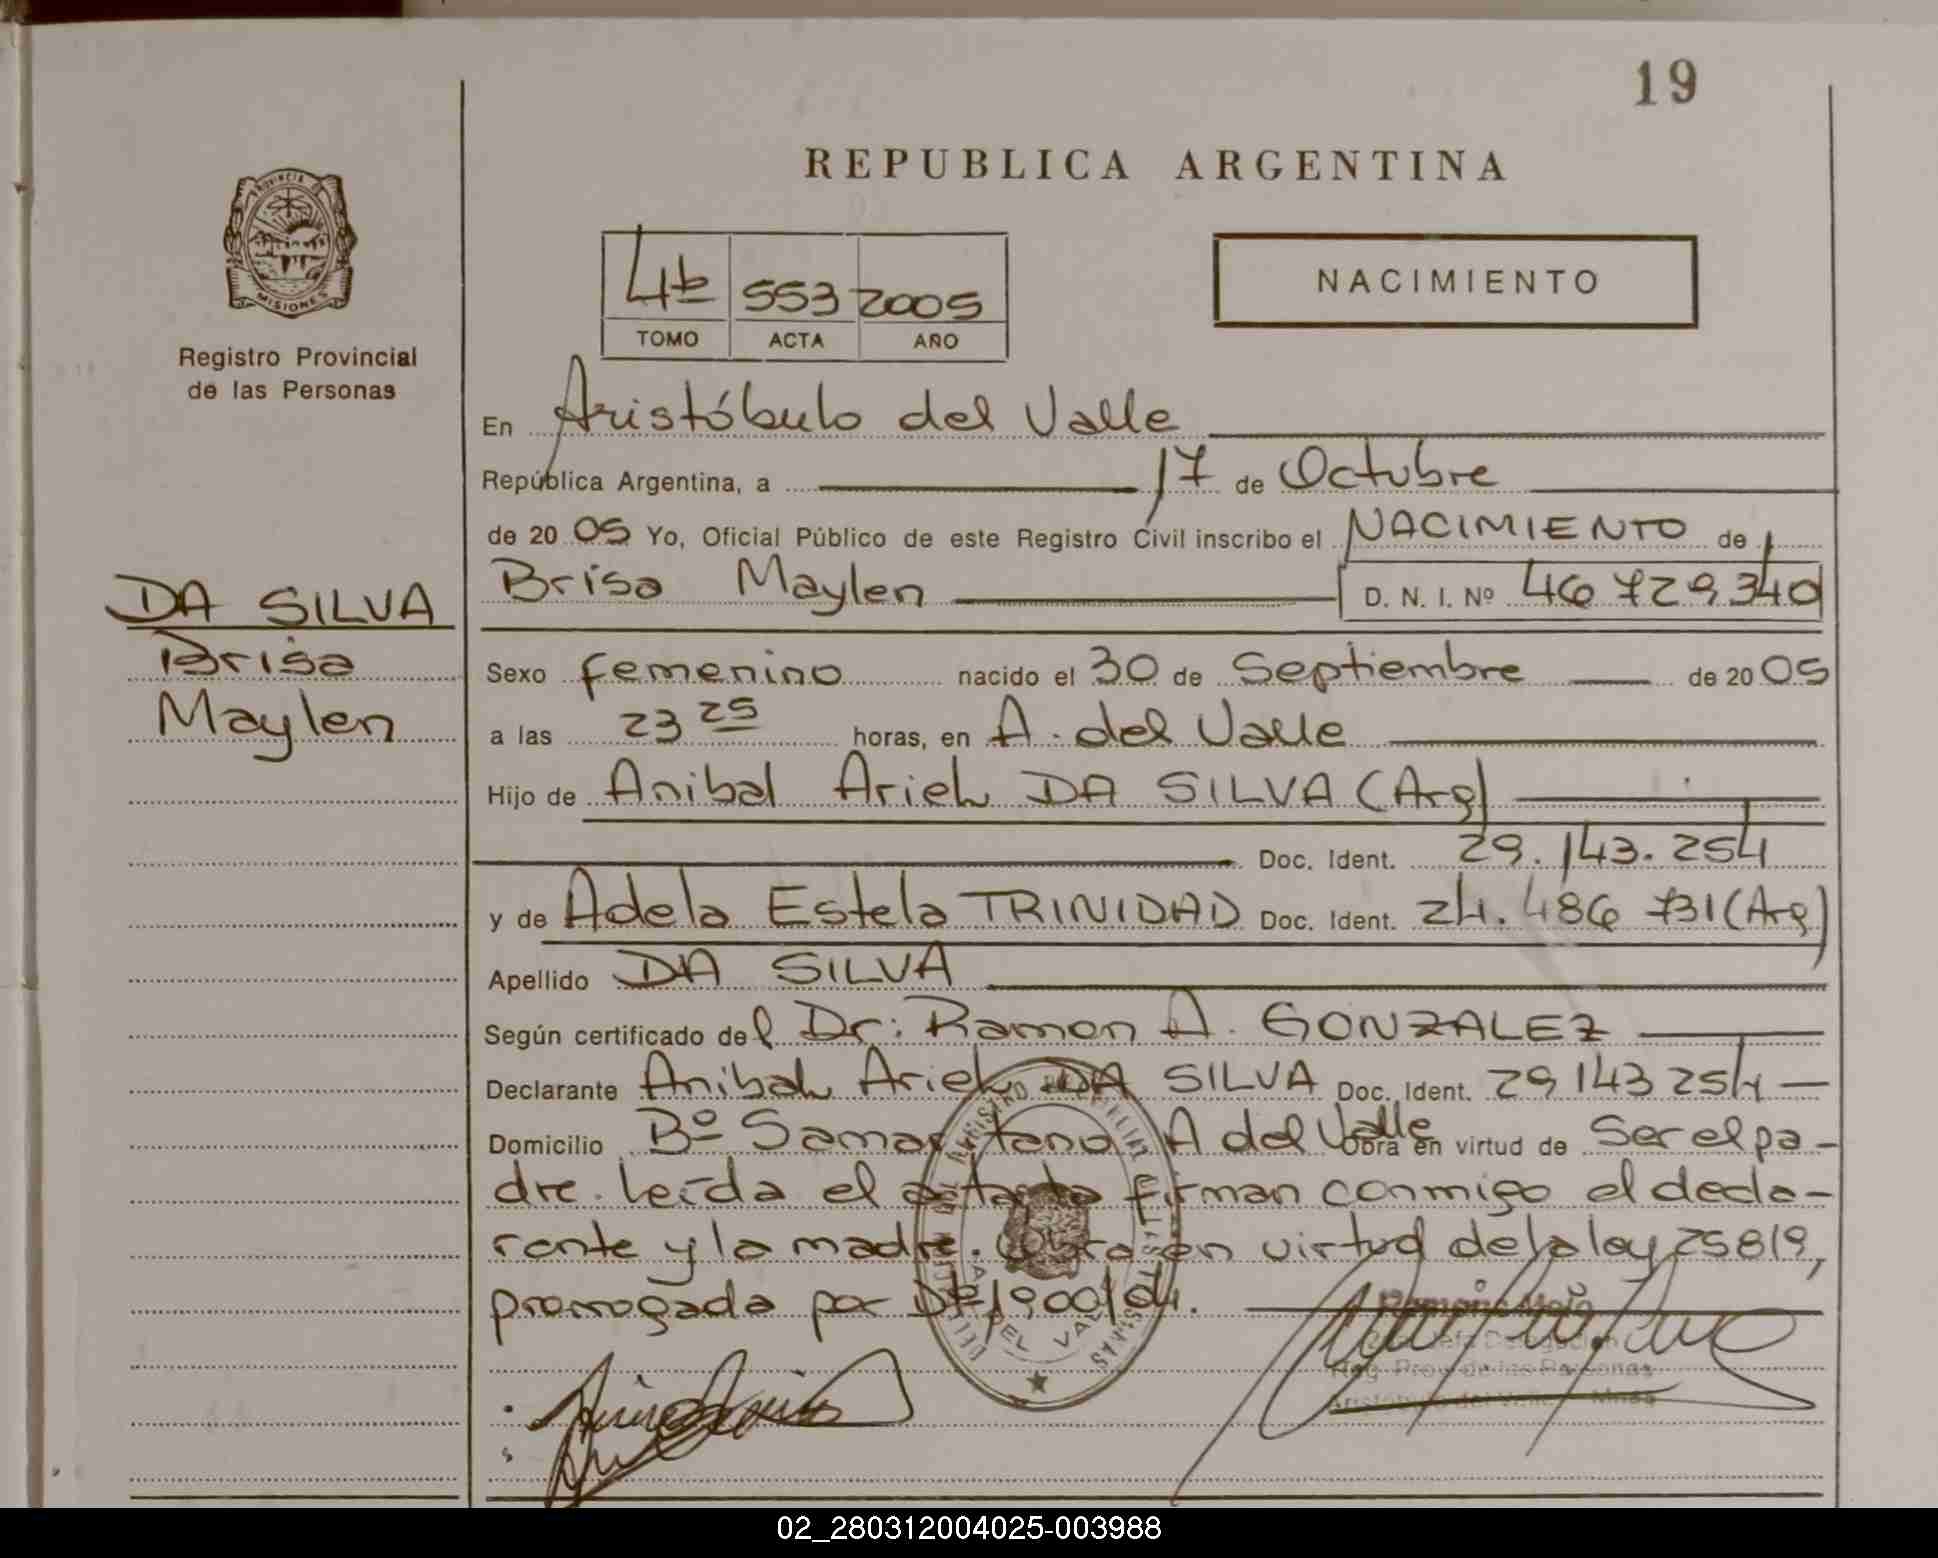 19
REPUBLICA ARGENTINA
PROVINCIA DE
MISIONES
Registro Provincial
de las Personas
4b 553 2005
TOMO ACTA AÑO
NACIMIENTO
En Aristóbulo del Valle
República Argentina, a 17 de Octubre
de 20 05 Yo, Oficial Público de este Registro Civil inscribo el NACIMIENTO de
Brisa Maylen D. N. I. Nº 46 729 340
DA SILVA
Brisa
Maylen
Sexo femenino nacido el 30 de Septiembre de 20 05
a las 23 25 horas, en A. del Valle
Hijo de Anibal Ariel DA SILVA (Arg)
Doc. Ident. 29.143.254
y de Adela Estela TRINIDAD Doc. Ident. 24.486 731 (Arg)
Apellido DA SILVA
Según certificado del Dr: Ramon A. GONZALEZ
Declarante Anibal Ariel DA SILVA Doc. Ident. 29 143 254
Domicilio Bº Samaritano A del Valle Obra en virtud de Ser el pa-
dre. Leída el acta firman conmigo el decla-
rante y la madre. en virtud de la ley 25819,
prorrogada por 1900/04.
DEL VALLE
Ramona
Reg. Prov de las Personas
Aristóbulo del Valle - Mnes
02_280312004025-003988